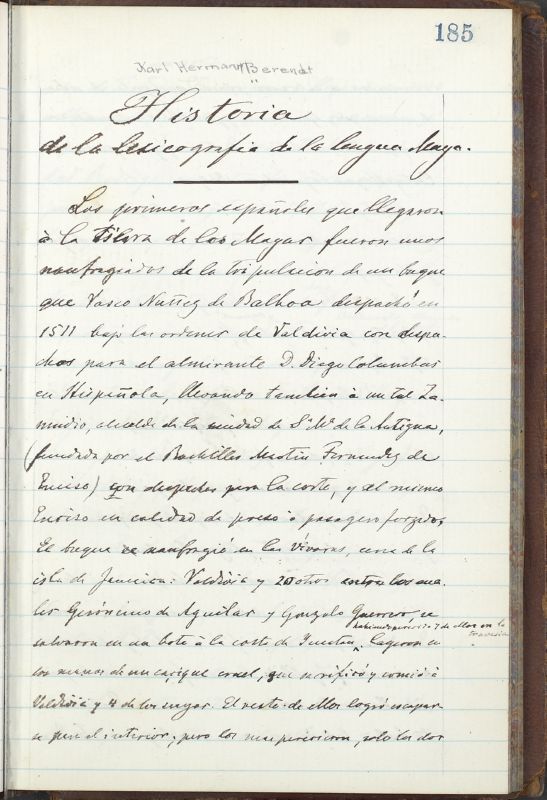 185
Karl Hermann Berendt
Historia
de la lexicografia de la lengua Maya.
Los primeros españoles que llegaron
à la tierra de los Mayas fueron unos
naufragiados de la tripulacion de un buque
que Vasco Nuñez de Balboa despachó en
1511 bajo las ordenes de Valdivia con despa-
chos para el almirante D. Diego Columbus
en Hispañola, llevando tambien à un tal Za-
mudio, alcalde de la ciudad de Sta. Ma. de la Antigua,
(fundada por el Bachiller Martin Fernandez de
Enciso) con despachos para la corte, y al mismo
Enciso en calidad de preso ò pasagero forzado.
El buque se naufragió en las Víboras, cerca de la
isla de Jamaica: Valdivia y 20 otros entre los cua-
les Gerónimo de Aguilar y Gonzalo Guerrero se
habiendo perecido 7 de ellos en la
travesia
salvaron en un bote à la costa de Yucatan, Cayeron en
las manos de un cacique cruel, que sacrificó y comió à
Valdivia y 4 de los suyos. El resto de ellos logró escapar-
se para el interior, pero los mas perecieron, solo los dos